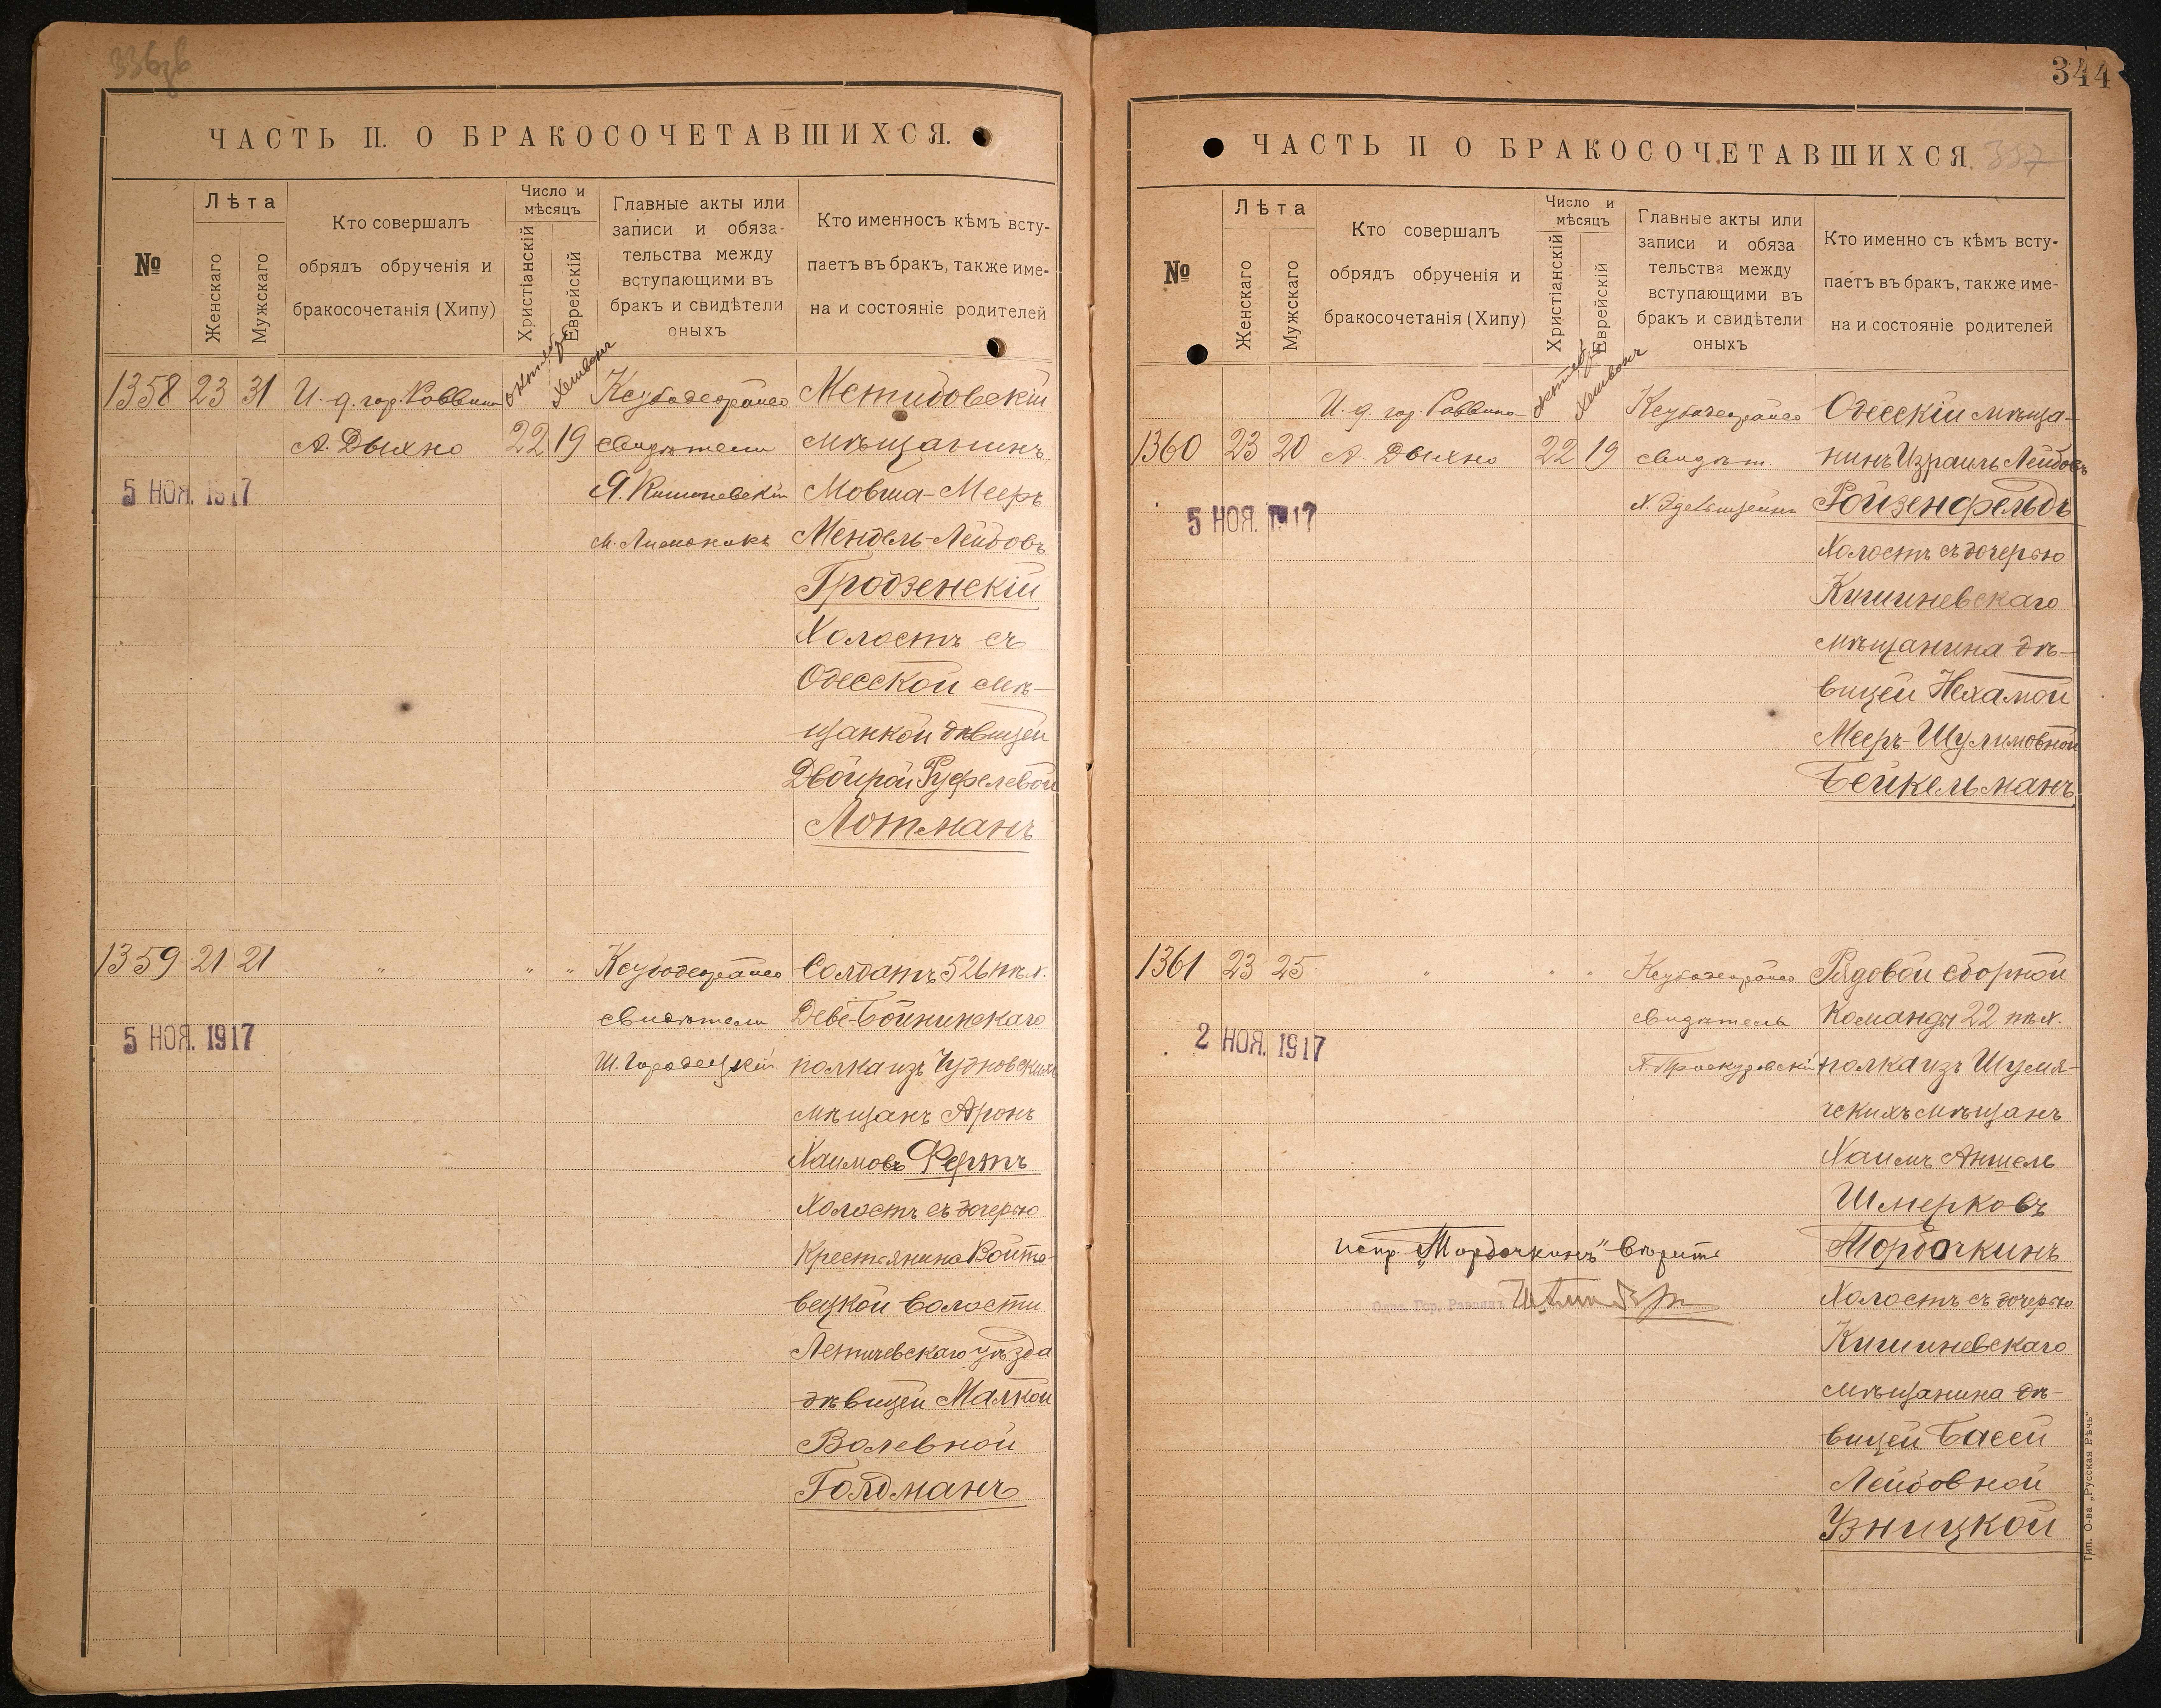 ЧАСТЬ II. О БРАКОСОЧЕТАВШИХСЯ.
№
Лѣта
Женскаго
Мужскаго
Кто совершалъ
обрядъ обрученія и
бракосочетанія (Хипу)
Число и
мѣсяцъ
Христіанскій
Еврейскій
Главные акты или
записи и обяза-
тельства между
вступающими въ
бракъ и свидѣтели
оныхъ
Кто именносъ кѣмъ всту-
паетъ въ бракъ, также име-
на и состояніе родителей
1358 23 31
И. д. гор. Раввина
А. Дыхно
октября
Хешвонъ
22 19
свидѣтели
Я. Кишиневскій
Мстибовскій
мѣщанинъ
Мовша-Мееръ
Мендель-Лейбовъ
Гродзенскій
Холостъ съ
Одесской мѣ-
щанкой дѣвицей
Двойрой
Лотманъ
5 НОЯ. 1917
1359 21 21 " " "
свидѣтели
Ш. Городецкій
Солдатъ 526 пѣх.
Деве-Бойнинскаго
полка изъ Чудновскихъ
мѣщанъ Аронъ
Хаимовъ Фертъ
Холостъ съ дочерью
Крестьянина Войто-
вецкой волости
Летичевскаго уѣзда
дѣвицей Малкой
Волевной
Голдманъ
5 НОЯ. 1917
344
ЧАСТЬ II О БРАКОСОЧЕТАВШИХСЯ.
337
№
Лѣта
Женскаго
Мужскаго
Кто совершалъ
обрядъ обрученія и
бракосочетанія (Хипу)
Число и
мѣсяцъ
Христіанскій
Еврейскій
Главные акты или
записи и обяза
тельства между
вступающими въ
бракъ и свидѣтели
оныхъ
Кто именно съ кѣмъ всту-
паетъ въ бракъ, также име-
на и состояніе родителей
1360 23 20
И. д. гор. Раввина
А. Дыхно
октября
Хешвонъ
22 19
свидѣт
Х. Эдельштейнъ
Одесскій мѣща-
нинъ Израиль Лейбовъ
Ройзенфельдъ
Холостъ съ дочерью
Кишиневскаго
мѣщанина дѣ-
вицей Нехамой
Мееръ-Шулимовной
Бейкельманъ
5 НОЯ. 1917
1361 23 25 " " "
свидѣтель
Проскуровскій
Рядовой сборной
Команды 22 пѣх.
полка изъ Шумя-
чскихъ мѣщанъ
Хаимъ Аншель
Шмерковъ
Мордочкинъ
Холостъ съ дочерью
Кишиневскаго
мѣщанина дѣ-
вицей Басей
Лейбовной
Узницкой
2 НОЯ. 1917
испр. „Мордочкинъ" вѣрить
Тип. О-ва „Русская Рѣчь"